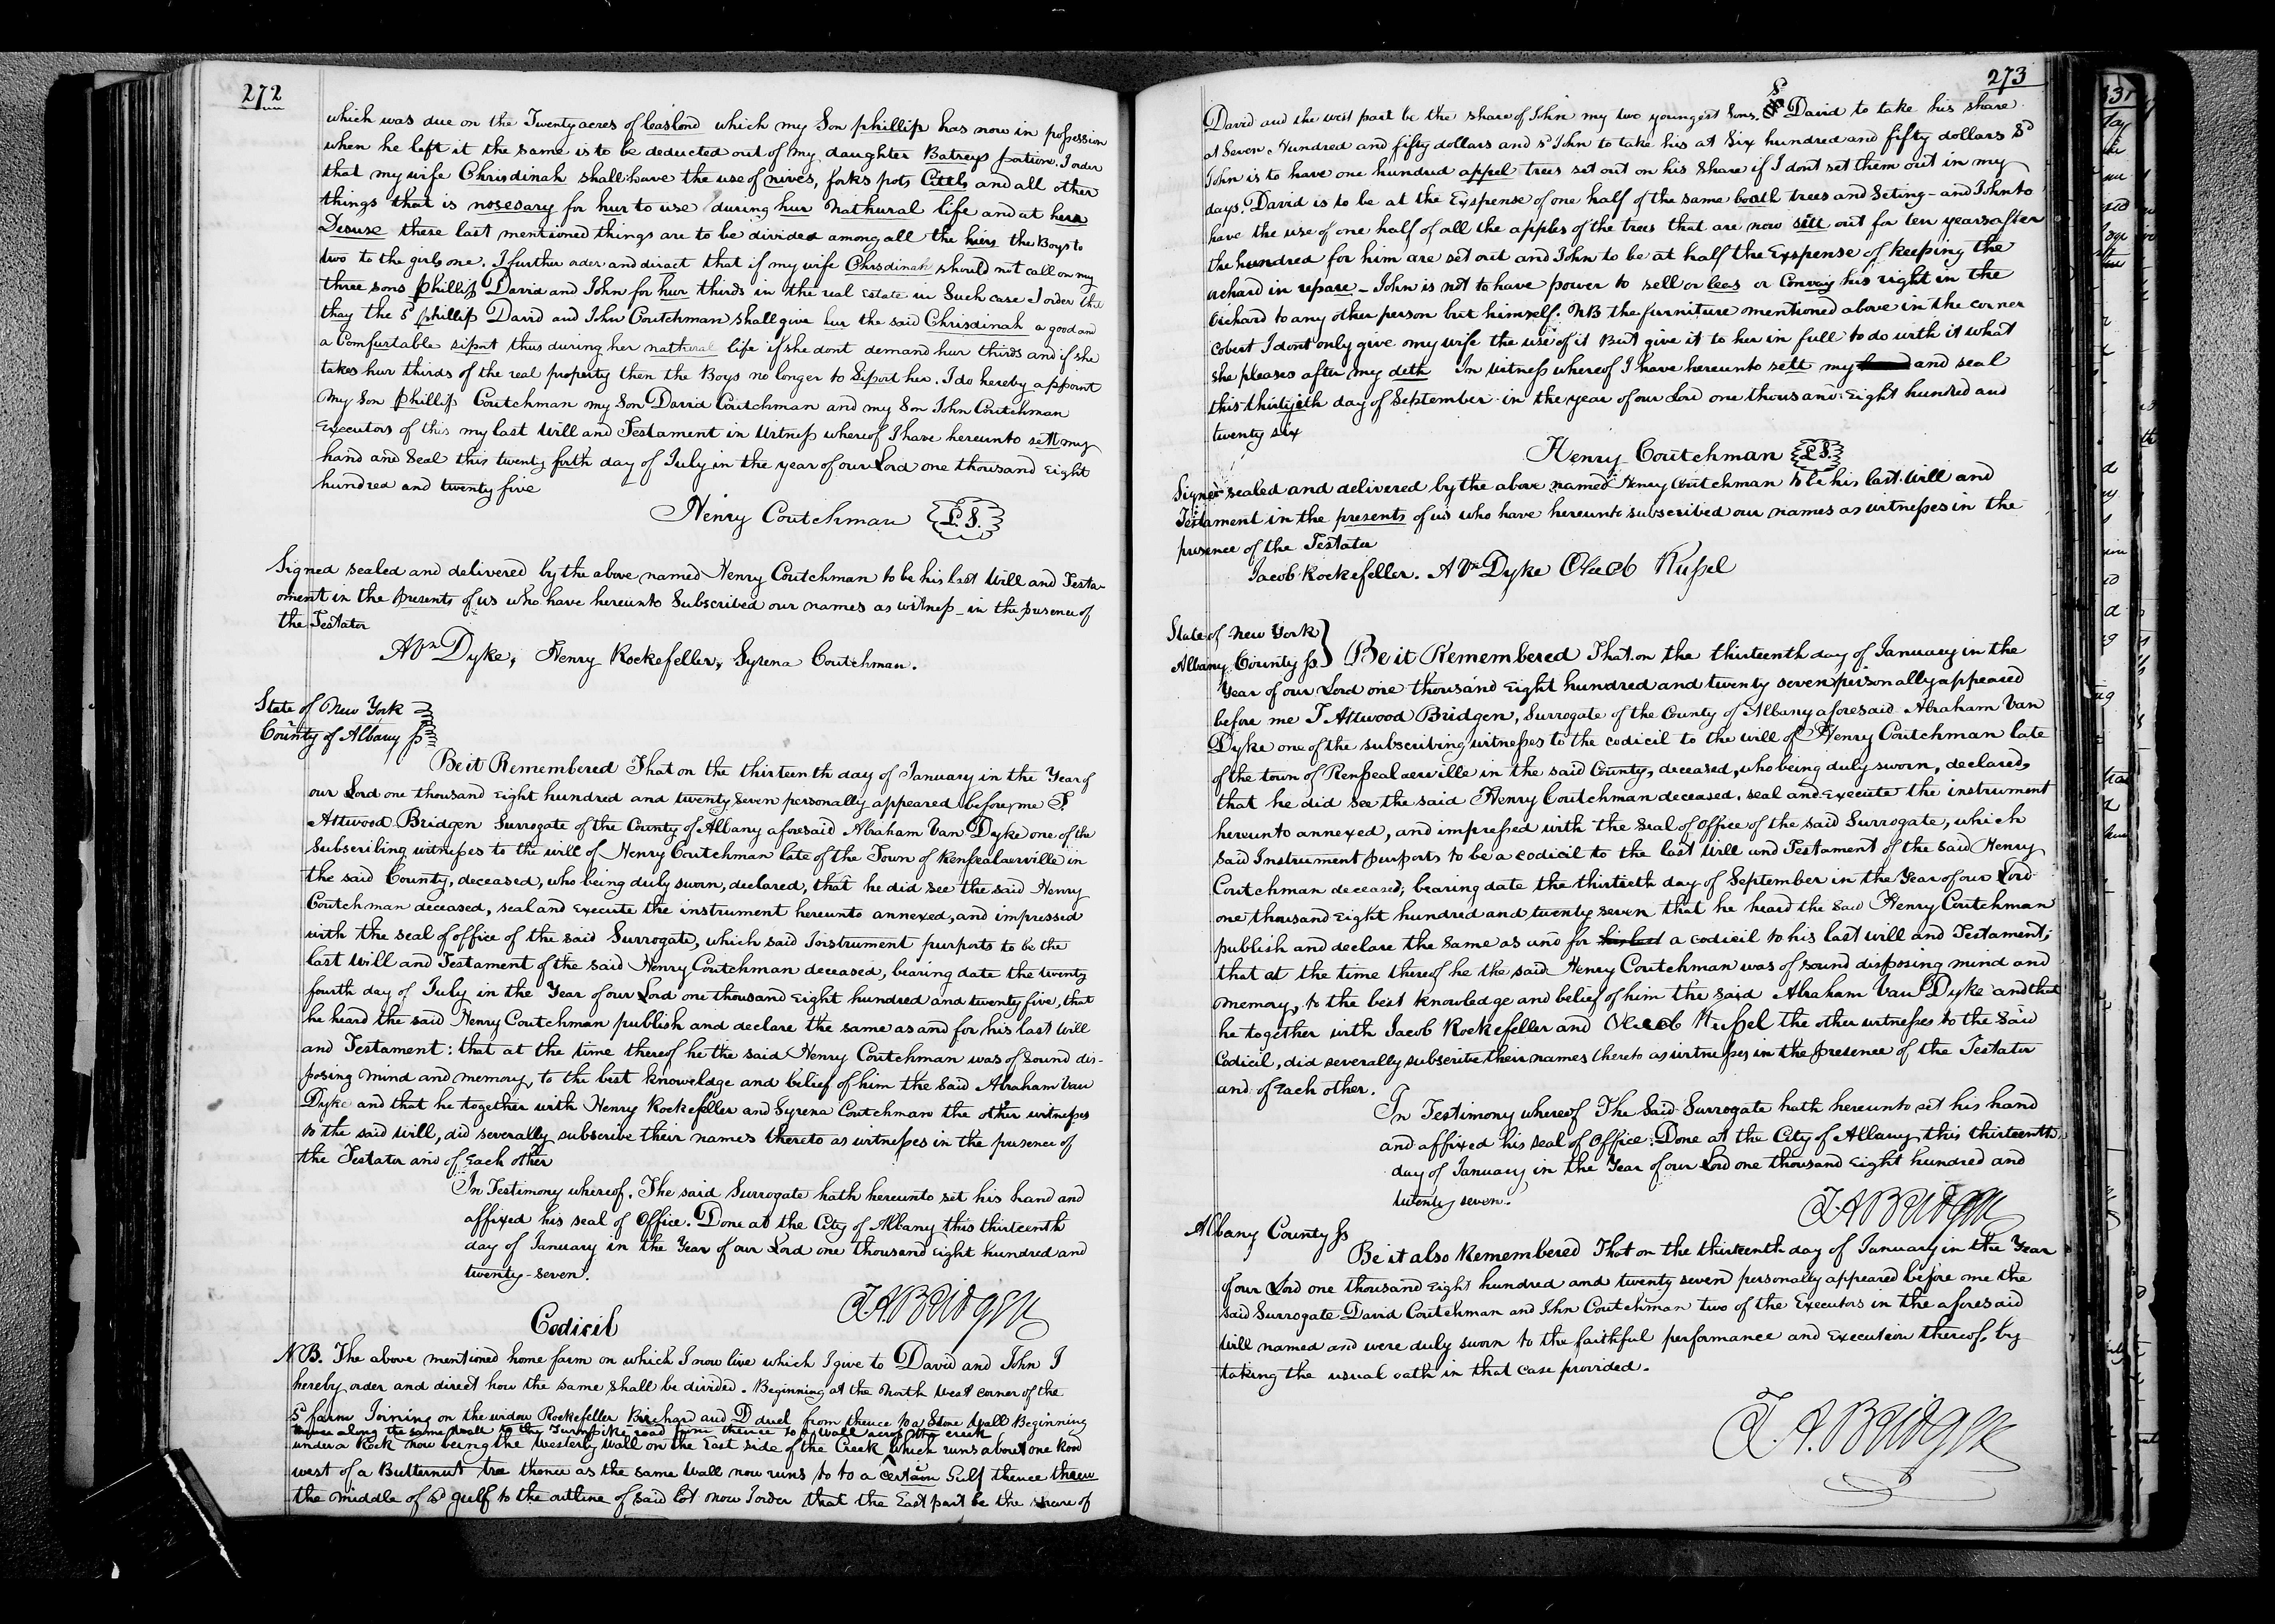 272
which was due on the Twenty acres of leaslond which my Son phillip has now in possession
when he left it the same is to be deducted out of my daughter Batreys portion. I order
that my wife Chrisdinah shall have the use of nives, forks pots Cittls and all other
things that is nosesary for hur to use during hur nathural life and at hera
Desuse these last mentioned things are to be divided among all the hiers the Boys to
two to the girls one. I further order and diract that if my wife Chrisdinah should not call on my
three sons phillip David and John for hur thirds in the real Estate in Such case I order the
thay the sd phillip David and John Coutchman shall give hur the said Chrisdinah a good and
a Comfurtable siport thus during her nathural life if she dont demand hur thirds and if she
takes hur thirds of the real property then the Boys no longer to Siport her. I do hereby appoint
my Son phillip Coutchman my Son David Coutchman and my Son John Coutchman
Executors of this my last Will and Testament in Witness whereof I have hereunto sett my
hand and Seal this twenty forth day of July in the year of our Lord one thousand Eight
hundred and twenty five
Henry Coutchman L.S.
Signed sealed and delivered by the above named Henry Coutchman to be his last Will and Testa-
ment in the presents of us who have hereunto Subscribed our names as witness - in the presence of
the Testator
A Vn Dyke, Henry Rockefeller, Syrena Coutchman.
State of New York
County of Albany ss
Be it Remembered That on the thirteenth day of January in the Year of
our Lord one thousand Eight hundred and twenty Seven personally appeared before me T
Attwood Bridgen Surrogate of the County of Albany aforesaid Abraham Van Dyke one of the
Subscribing witnesses to the will of Henry Coutchman late of the Town of Rensealaerville in
the said County, deceased, who being duly sworn, declared, that he did see the said Henry
Coutchman deceased, seal and Execute the instrument hereunto annexed, and impressed
with the seal of office of the said Surrogate, which said Instrument purports to be the
last Will and Testament of the said Henry Coutchman deceased, bearing date the twenty
fourth day of July in the Year of our Lord one thousand Eight hundred and twenty five, that
he heard the said Henry Coutchman publish and declare the same as and for his last Will
and Testament: that at the time thereof he the said Henry Coutchman was of sound dis-
posing mind and memory, to the best knoweldge and belief of him the said Abraham Van
Dyke and that he together with Henry Rockefeller and Syrena Coutchman the other witnesses
to the said will, did severally subscribe their names thereto as witnesses in the presence of
the Testator and of Each other
In Testimony whereof. The said Surrogate hath hereunto set his hand and
affixed his seal of Office. Done at the City of Albany this thirteenth
day of January in the Year of our Lord one thousand Eight hundred and
twenty-seven.
T. A. Bridgen
Codicil
N B. The above mentioned home farm on which I now live which I give to David and John I
hereby order and direct how the same shall be divided. Beginning at the North West corner of the
sd farm Joining on the widow Rockefeller Birchard and D duel from thence to a Stone Wall Beginning
thence along the same wall to the Turnpike road from thence to a wall across the creek
under a Rock now being the Westerly Wall on the East side of the Creek which runs about one Rood
west of a Butternut tree thence as the same Wall now runs to to a certain Gulf thence threw
the middle of sd gulf to the outline of said lot now I order that the East part be the share of
273
David and the west part be the share of John my two youngest Sons. Sd David to take his share
at Seven Hundred and fifty dollars and sd John to take his at Six hundred and fifty dollars Sd
John is to have one hundred appel trees set out on his Share if I dont set them out in my
days. David is to be at the Expense of one half of the same boath trees and Seting - and John to
have the use of one half of all the apples of the trees that are now sett out for ten years after
the hundred for him are set out and John to be at half the Exspense of keeping the
orchard in repare - John is not to have power to sell or leas or Convay his right in the
Orchard to any other person but himself. NB the furniture mentioned above in the corner
cobert I dont only give my wife the use of it But give it to her in full to do with it what
she pleases after my deth In witness whereof I have hereunto sett my hand and seal
this thirtyeth day of September in the year of our Lord one thousand Eight hundred and
twenty six
Henry Coutchman L.S.
Signed sealed and delivered by the above named Henry Coutchman to be his last Will and
Testament in the presents of us who have hereunto subscribed our names as witnesses in the
presence of the Testator
Jacob Rockefeller. A Vn Dyke Russel
State of New York
Albany County ss Be it Remembered That on the thirteenth day of January in the
Year of our Lord one thousand Eight hundred and twenty seven personally appeared
before me T Attwood Bridgen, Surrogate of the County of Albany aforesaid Abraham Van
Dyke one of the subscribing witnesses to the codicil to the will of Henry Coutchman late
of the town of Rensealaerville in the said County, deceased, who being duly sworn, declared,
that he did see the said Henry Coutchman deceased, seal and Execute the instrument
hereunto annexed, and impressed with the Seal of Office of the said Surrogate, which
said Instrument purports to be a codicil to the last Will and Testament of the said Henry
Coutchman deceased; bearing date the thirtieth day of September in the Year of our Lord
one thousand Eight hundred and twenty seven that he heard the said Henry Coutchman
publish and declare the same as and for his last a codicil to his last will and Testament;
that at the time thereof he the said Henry Coutchman was of sound disposing mind and
memory, to the best knowledge and belief of him the said Abraham Van Dyke and that
he together with Jacob Rockefeller and Russel the other witnesses to the Said
Codicil, did severally subscribe their names thereto as witnesses in the presence of the Testator
and of Each other.
In Testimony whereof The Said Surrogate hath hereunto set his hand
and affixed his seal of Office. Done at the City of Albany this thirteenth
day of January in the Year of our Lord one thousand Eight hundred and
twenty seven.
T. A. Bridgen
Albany County ss
Be it also Remembered That on the thirteenth day of January in the Year
of our Lord one thousand Eight hundred and twenty seven personally appeared before me the
said Surrogate David Coutchman and John Coutchman two of the Executors in the aforesaid
Will named and were duly sworn to the faithful performance and Execution thereof, by
taking the usual oath in that case provided.
T. A. Bridgen